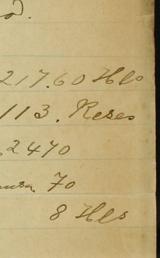 217.60 Hls
113. Reses
2470
70
8 Hls